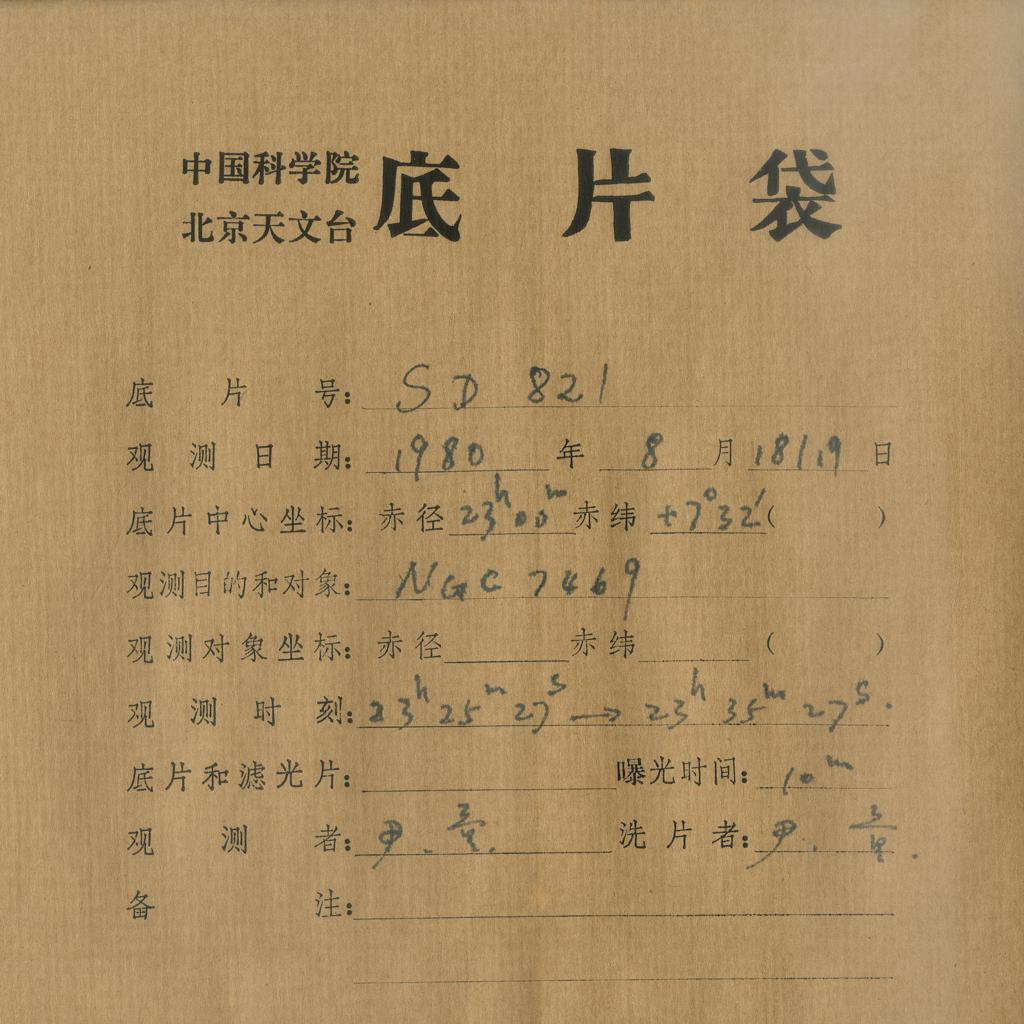 中国科学院
北京天文台
底片袋
底片号: SD 821
观测日期: 1980 年 8 月 18/19 日
底片中心坐标: 赤径 23h00m 赤纬 +7°32′ ( )
观测目的和对象: NGC 7469
观测对象坐标: 赤径 赤纬 ( )
观测时刻: 23h 25m 27s → 23h 35m 27s.
底片和滤光片: 曝光时间: 10m
观测者: 尹.
洗片者: 尹.
备注: